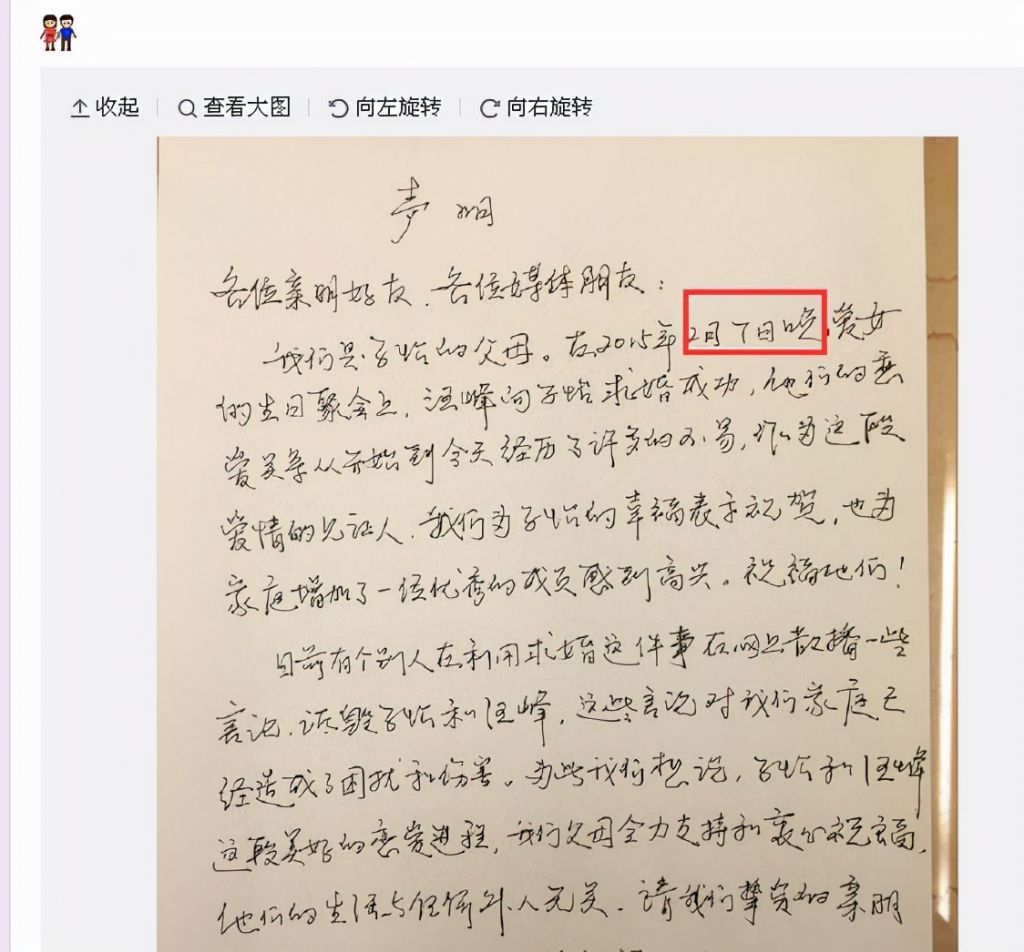 收起 查看大图 向左旋转 向右旋转
声明
各位亲朋好友、各位媒体朋友：
我们是子怡的父母。在2015年2月7日晚，爱女
的生日聚会上，汪峰向子怡求婚成功，他们的恋
爱关系从开始到今天经历了许多的不易，作为这段
爱情的见证人，我们为子怡的幸福表示祝贺，也为
家庭增加了一位优秀的成员感到高兴。祝福他们！
目前有个别人在利用求婚这件事在网上散播一些
言论，诋毁子怡和汪峰，这些言论对我们家庭已
经造成了困扰和伤害。为此我们想说，子怡和汪峰
这段美好的恋爱进程，我们父母全力支持和衷心祝福，
他们的生活与任何外人无关。请我们挚爱的亲朋